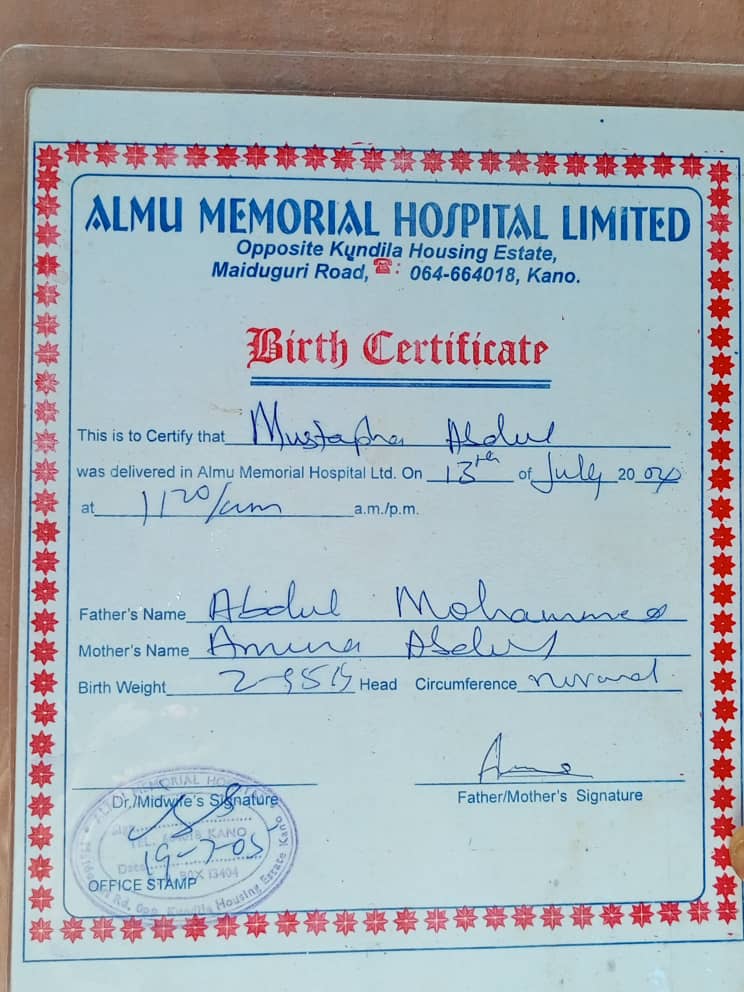 ALMU MEMORIAL HOSPITAL LIMITED
Opposite Kundila Housing Estate,
Maiduguri Road, ☎: 064-664018, Kano.
Birth Certificate
This is to Certify that Mustapha Abdul
was delivered in Almu Memorial Hospital Ltd. On 13th of July 20 04
at 1120/am a.m./p.m.
Father's Name Abdul Mohammed
Mother's Name Amina Abdul
Birth Weight Head Circumference normal
Dr,/Midwife's Signature
Father/Mother's Signature
ALMU MEMORIAL HOSPITAL
KANO
19-7-05
Date BOX 13404
OFFICE STAMP
Rd. Opp. Kundila Housing Estate Kano